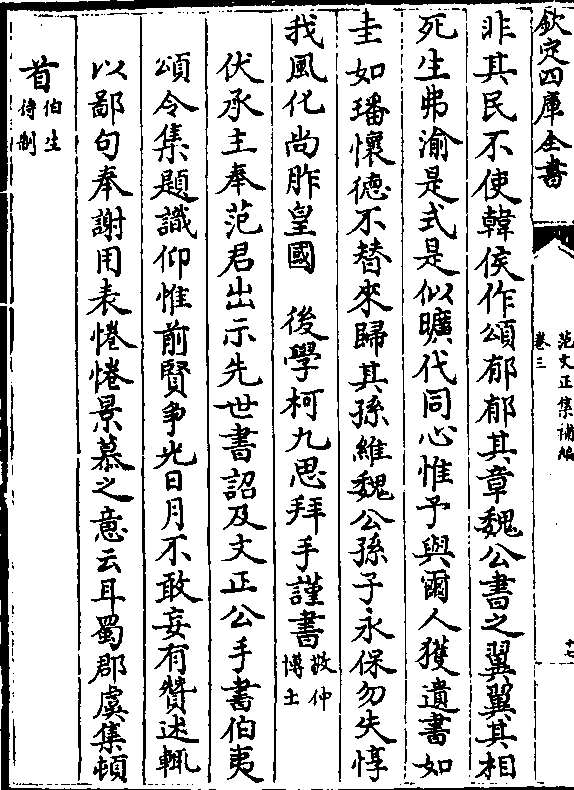 欽定四庫全書
范文正集補編
卷三
十七
非其民不使韓侯作頌郁郁其章魏公書之翼翼其相
死生弗渝是式是似曠代同心惟予與爾人獲遺書如
圭如璠懷德不替來歸其孫維魏公孫子永保勿失惇
我風化尚胙皇國　後學柯九思拜手謹書敬仲博士
伏承主奉范君出示先世書詔及文正公手書伯夷
頌令集題識仰惟前賢爭光日月不敢妄有贊述輒
以鄙句奉謝用表惓惓景慕之意云耳蜀郡虞集頓
首伯生待制